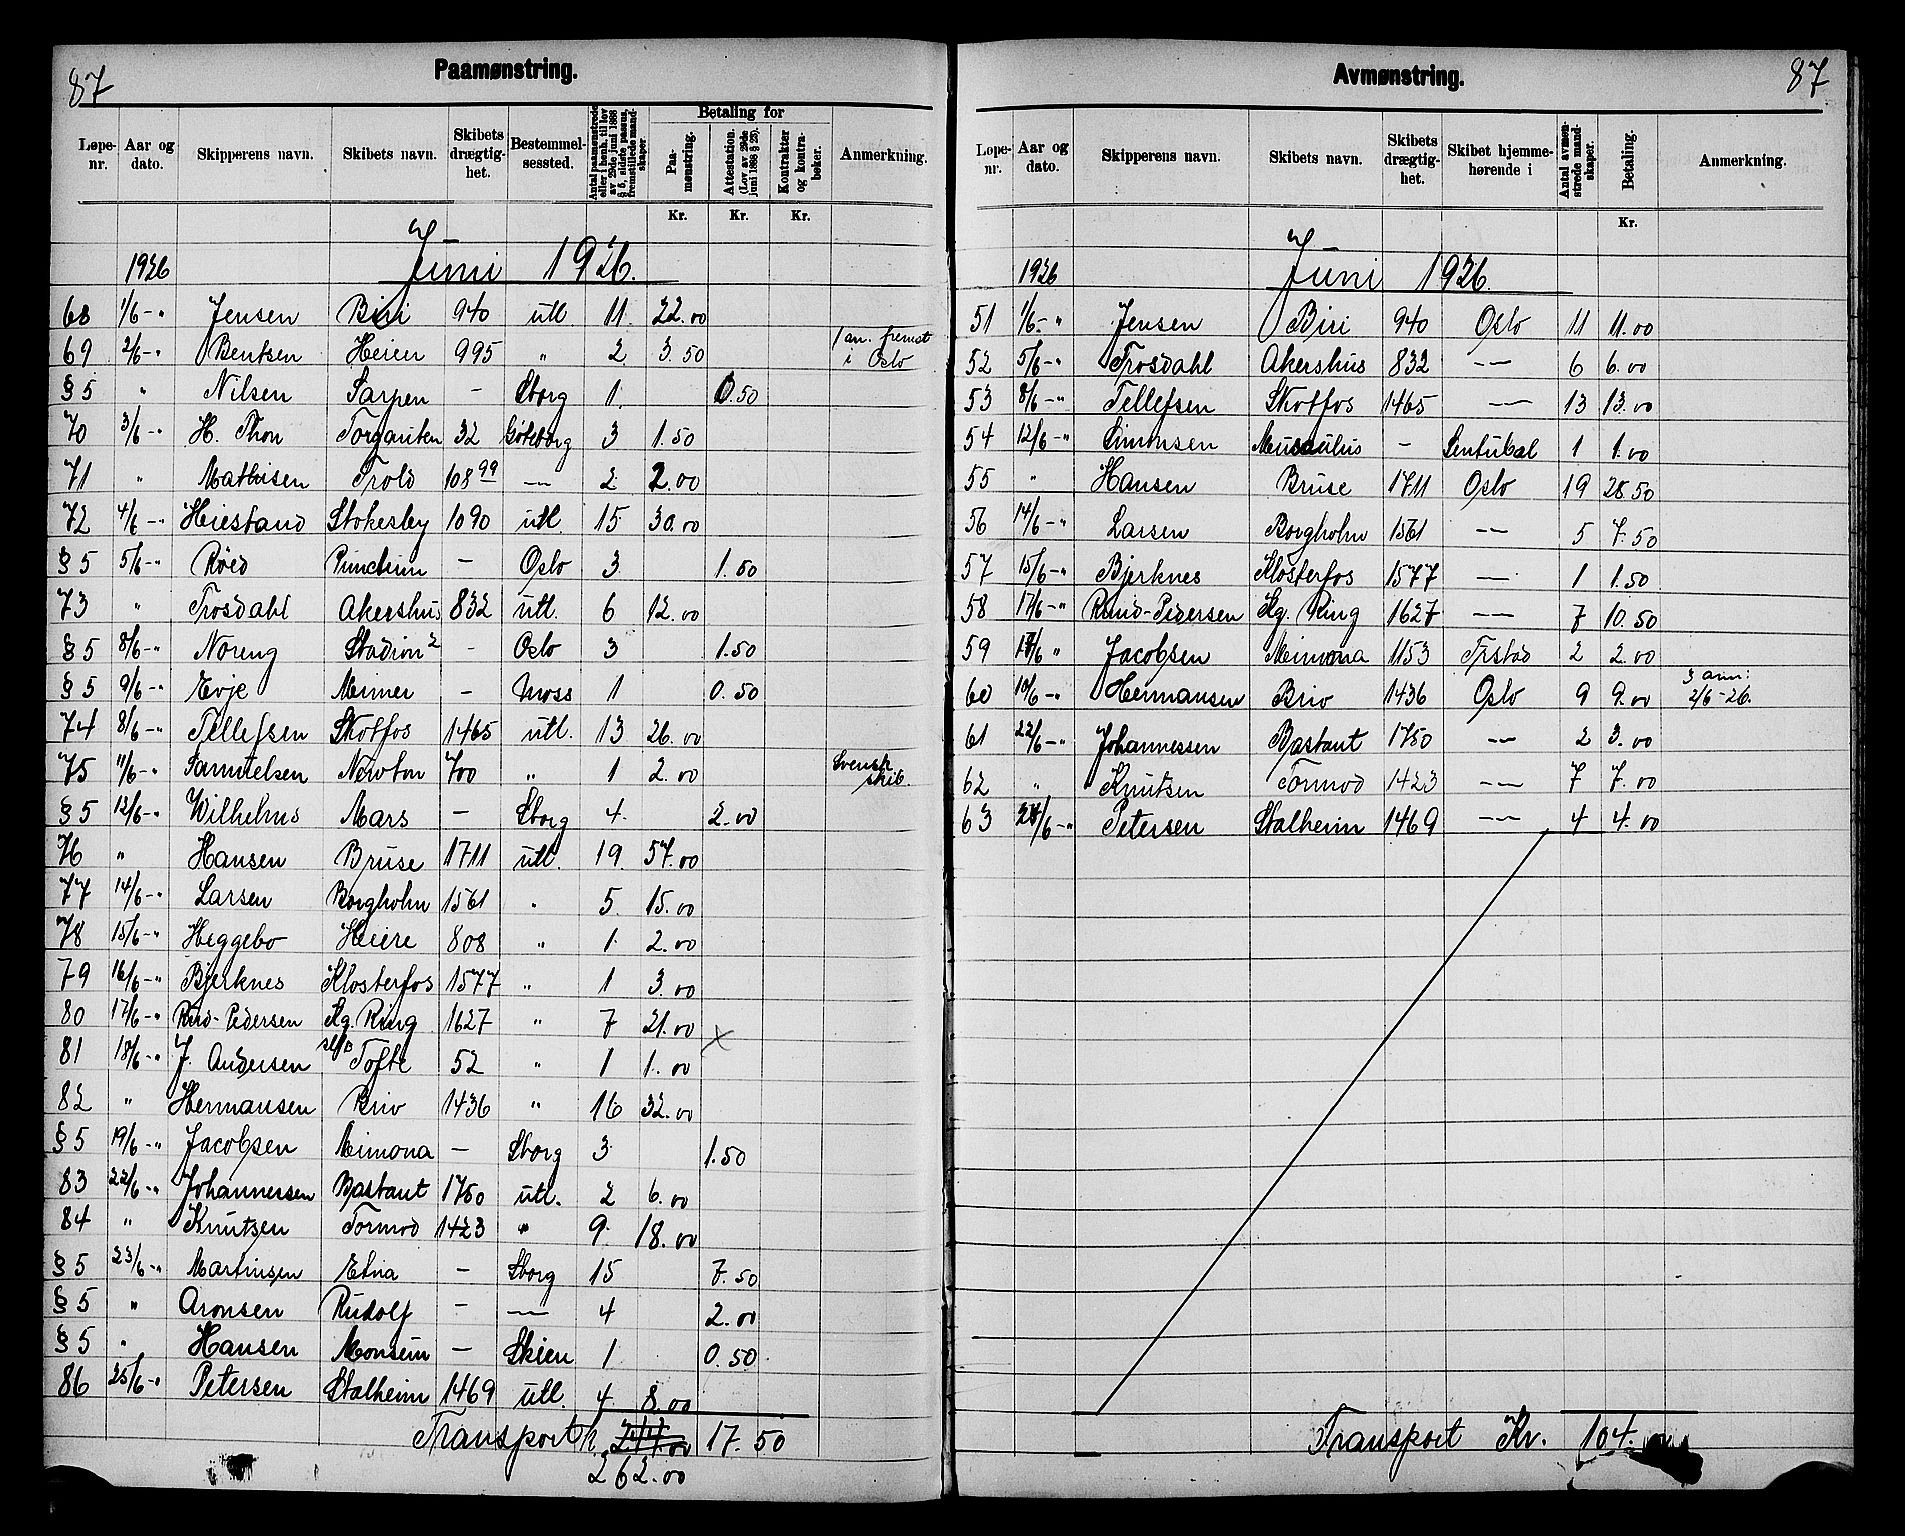 87
Paamønstring.
Løpe-nr. Aar og dato. Skipperens navn. Skibets navn. Skibets drægtig-het. Bestemmel-sessted. Antal paamønstrede eller i henh. til lov av 29de juni 1888 § 5, sidste passus, fremstillede mand-skaper. Betaling for Paa-mønstring. Attestation. (Lov av 29de juni 1888 § 25). Kontrakter og kontra-bøker. Anmerkning.
Kr. Kr. Kr.
1926 Juni 1926.
68 1/6 -" Jensen Biri 940 utl. 11. 22.00
69 2/6 -" Bentsen Heien 995 " 2 3.50 1 an. fremst i Oslo
§ 5 " Nilsen Sarpen - Sborg 1. 0.50
70 3/6 -" H. Thon Torgauten 32 Göteborg 3 1.50
71 " Mathisen Trold 108 99 -"- 2 2.00
72 4/6 -" Heiestand Stokesby 1090 utl. 15 30.00
§ 5 5/6 -" Röed Punctum - Oslo 3 1.50
73 " Trosdahl Akershus 832 utl. 6 12.00
§ 5 8/6 -" Noreng Stadion 2 - Oslo 3 1.50
§ 5 9/6 -" Evje Meimer - Moss 1 0.50
74 8/6 -" Tellefsen Skotfos 1465 utl. 13 26.00
75 11/6 -" Samuelsen Newton 700 " 1 2.00 Svensk skib.
§ 5 12/6 -" Wilhelms Mars - Sborg 4. 2.00
76 " Hansen Bruse 1711 utl. 19. 57.00
77 14/6 -" Larsen Borgholm 1561 " 5. 15.00
78 15/6 -" Heggebo Heire 808 " 1. 2.00
79 16/6 -" Bjerknes Klosterfos 1577 " 1 3.00
80 17/6 -" Rud-Pedersen Kg. Ring 1627 " 7 21.00 x
81 18/6 -" J. Andersen Tofte 52 " 1 1.00
82 " Hermansen Brio 1436 " 16 32.00
§ 5 19/6 -" Jacobsen Meimona - Sborg 3 1.50
83 22/6 -" Johannessen Bastant 1750 utl. 2 6.00
84 " Knutsen Tormod 1423 " 9. 18.00
§ 5 23/6 -" Martinsen Etna - Sborg 15 7.50
§ 5 " Aronsen Rudolf - -"- 4 2.00
§ 5 " Hansen Monsun - Skien 1 0.50
86 25/6 -" Petersen Stalheim 1469 utl. 4 8.00
Transport 17.50
262.00
Avmønstring.
87
Løpe-nr. Aar og dato. Skipperens navn. Skibets navn. Skibets drægtig-het. Skibet hjemme-hørende i Antal avmøn-strede mand-skaper. Betaling. Anmerkning.
Kr.
1926 Juni 1926.
51 1/6 -" Jensen Biri 940 Oslo 11 11.00
52 5/6 -" Trosdahl Akershus 832 -"- 6 6.00
53 8/6 -" Tellefsen Skotfos 1465 -"- 13 13.00
54 12/6 -" Simonsen Musculus - Sentubal 1 1.00
55 " Hansen Bruse 1711 Oslo 19 28.50
56 14/6 -" Larsen Borgholm 1561 -"- 5 7.50
57 15/6 -" Bjerknes Klosterfos 1577 -"- 1 1.50
58 17/6 -" Rud-Pedersen Kg. Ring 1627 -"- 7 10.50
59 17/6 " Jacobsen Meimona 1153 Frstad 2 2.00
60 10/6 -" Hermansen Brio 1436 Oslo 9 9.00 3 avm: 2/6-26.
61 22/6 -" Johannessen Bastant 1750 -"- 2 3.00
62 " Knutsen Tormod 1423 -"- 7 7.00
63 24/6 -" Petersen Stalheim 1469 -"- 4 4.00
Transport Kr. 104.